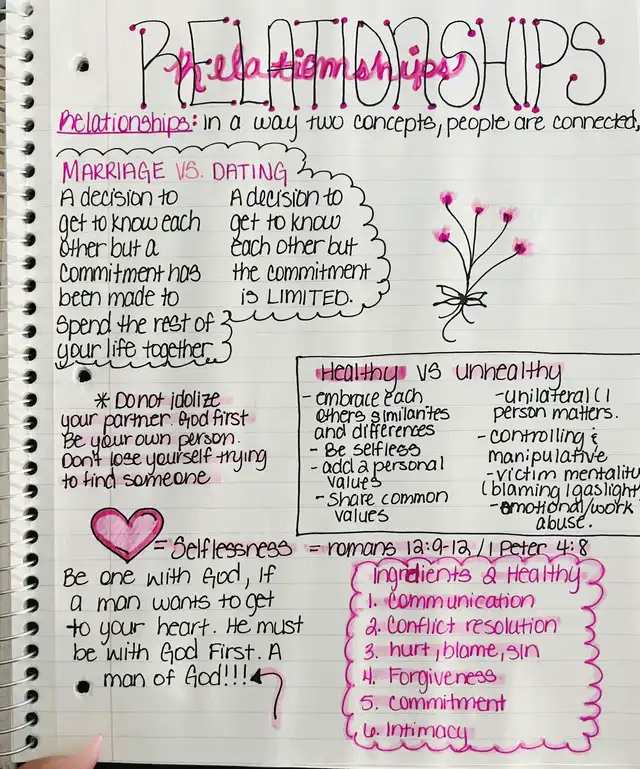 RELATIONSHIPS
Relationships
Relationships: In a way two concepts, people are connected,
MARRIAGE VS. DATING
A decision to
get to know each
other but a
commitment has
been made to
spend the rest of
your life together
A decision to
get to know
each other but
the commitment
is LIMITED.
* Do not idolize
your partner. God first
Be your own person.
Don't lose yourself trying
to find someone
Healthy VS Unhealthy
- embrace each
others similarites
and differences
- Be selfless
- add 2 personal
values
- Share common
values
- unilateral (1
person matters.
- controlling &
manipulative
- victim mentality
(blaming/gaslight
- emotional/work
abuse.
= Selflessness = romans 12:9-12/1 Peter 4:8
Be one with God, If
a man wants to get
to your heart. He must
be with God First. A
man of God!!!
Ingredients 2 Healthy
1. Communication
2. Conflict resolution
3. hurt, blame, sin
4. Forgiveness
5. Commitment
6. Intimacy